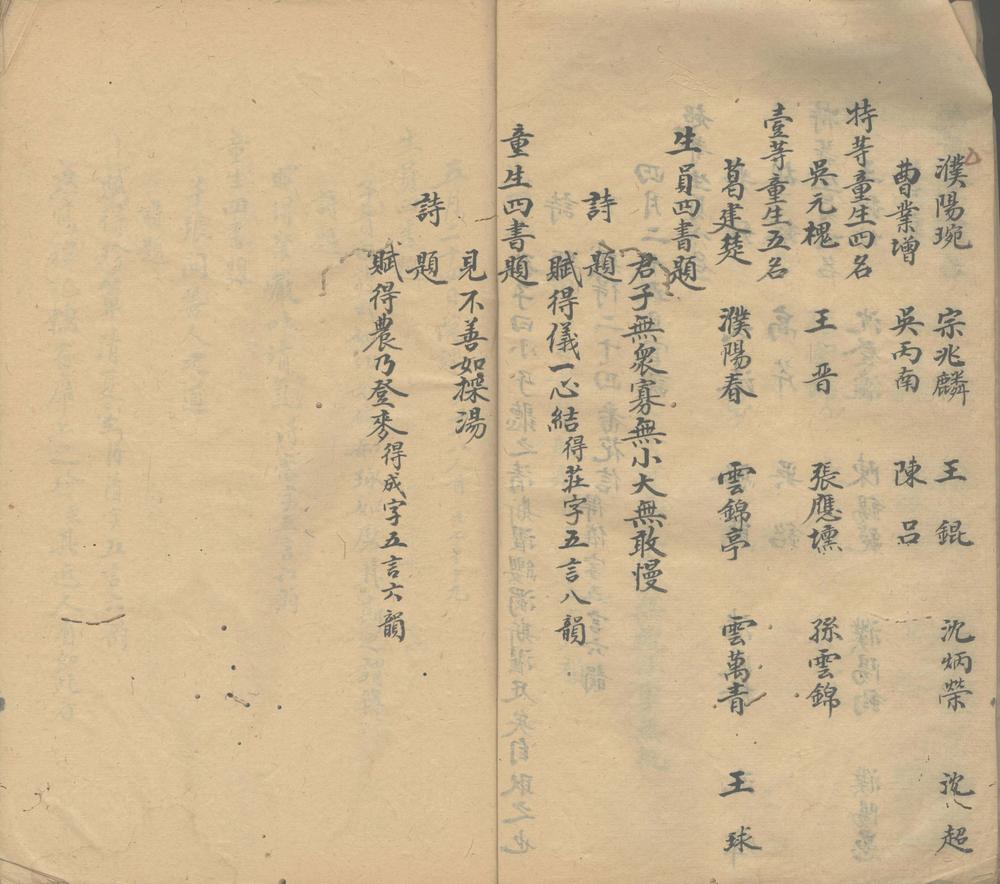 濮陽琬 宗兆麟 王錕 沈炳榮 沈超
曹業增 吳丙南 陳呂
特等童生四名
吳元槐 王晉 張應壎 孫雲錦
壹等童生五名
葛建楚 濮陽春 雲錦亭 雲萬青 王球
生員四書題
君子無衆寡無小大無敢慢
詩題
賦得儀一心結得莊字五言八韻
童生四書題
見不善如探湯
詩題
賦得農乃登麥得成字五言六韻